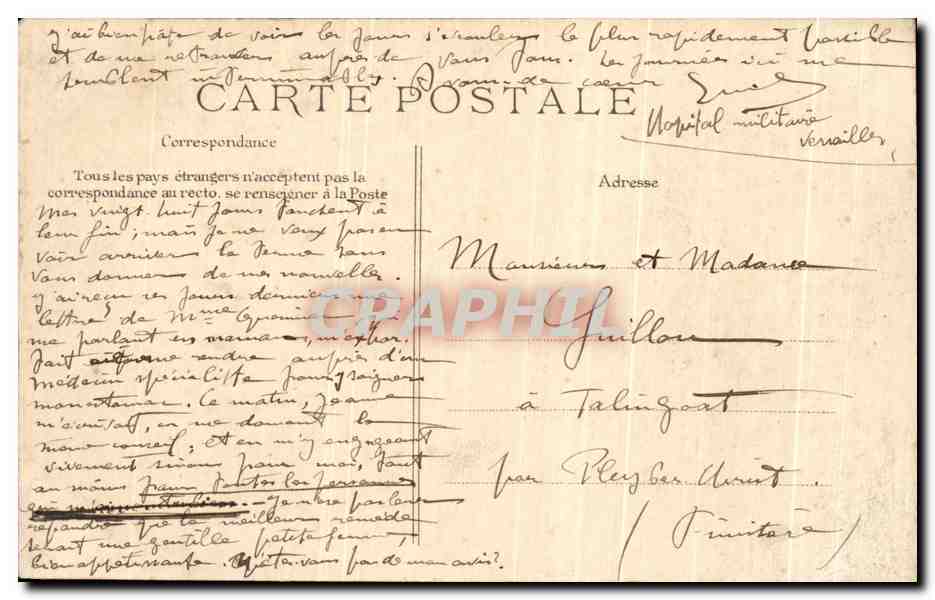 J'ai bien hâte de voir les jours s'écouler le plus rapidement possible
et de me retrouver auprès de vous tous. Les journées ici me
semblent interminables. Bonsoir de cœur
CARTE POSTALE
Hôpital militaire
Versailles
Correspondance
Tous les pays étrangers n'acceptent pas la
correspondance au recto, se renseigner à la Poste
Mes vingt-huit jours touchent à
leur fin ; mais je ne veux pas en
voir arriver le terme sans
vous donner de mes nouvelles.
J'ai reçu ces jours derniers une
lettre de Mme
me parlant en
fait me rendre auprès d'un
médecin spécialiste pour y soigner
mon estomac. Ce matin, Jeanne
m'écrivait, en me donnant le
même conseil, et en m'y engageant
vivement sinon pour moi, tout
au moins pour toutes les personnes
que Je n'ose pas leur
répondre que le meilleur remède
serait une gentille petite femme,
bien appétissante. N'êtes-vous pas de mon avis ?
Adresse
Monsieur et Madame
Guillou
à Talingoat
par Pleyber-Christ.
(Finistère)
CPAPHIL